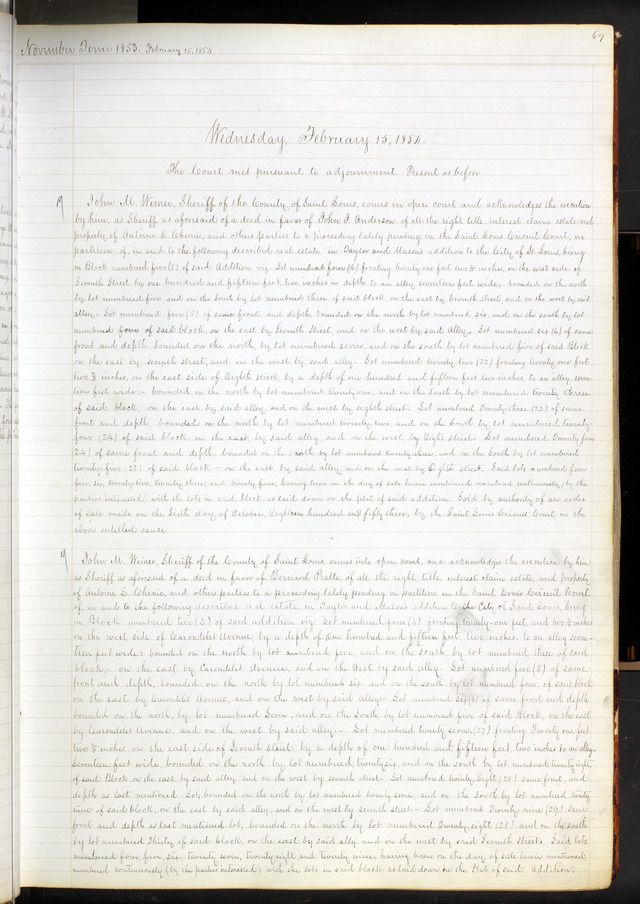 November Term 1853. February 15, 1854.
69
Wednesday, February 15, 1854.
The Court met pursuant to adjournment. Present as before
John M. Wimer, Sheriff of the County of Saint Louis, comes in open court and acknowledges the execution
by him, as Sheriff as aforesaid of a deed in favor of John J. Anderson of all the right title, interest claim estate and
property of Antoine L. Chenie, and others parties to a proceeding lately pending in the Saint Louis Circuit Court, in
partition, of, in and to the following described real estate, in Taylor and Masons addition to the City of St. Louis, being
in Block numbered five (5) of said Addition, viz; Lot numbered four (4) fronting twenty one feet two inches, on the west side of
Seventh Street by one hundred and fifteen feet, two inches in depth to an alley seventeen feet wide; bounded on the north
by lot numbered five and on the south by lot numbered three of said block on the east by Seventh street, and on the west by said
alley.- Lot numbered five (5) of same front and depth bounded on the north by lot numbered six, and on the south by lot
numbered four of said block, on the east by Seventh Street, and on the west by said Alley. Lot numbered six (6) of same
front and depth bounded on the north, by lot numbered seven, and on the south by lot numbered five of said Block
on the east by seventh street, and on the west by said alley.- Lot numbered twenty two (22) fronting twenty one feet
two inches, on the east side of Eighth street, by a depth of one hundred and fifteen feet two inches, to an alley, seven-
teen feet wide;- bounded on the north by lot numbered twenty one, and on the South by lot numbered twenty three
of said block, on the east by said alley and on the west by eighth street. Lot numbered Twenty three (23) of same
front and depth bounded on the north by lot numbered twenty-two, and on the South by lot numbered twenty-
four (24) of said block, on the east, by said alley, and on the west, by Eighth street. Lot numbered Twenty four
24) of same front and depth, bounded on the north by lot numbered twenty three, and on the South by lot numbered
twenty-five (25) of said block - on the east by said alley, and on the west by Eighth street. Said lots numbered four
five, six, twenty two, twenty three, and twenty four, having been on the day of sale herein mentioned numbered continuously, (by the
parties interested) with the lots in said block as laid down on the plat of said addition. Sold by authority of an order
of sale made on the Sixth day of October, Eighteen hundred and fifty three, by the Saint Louis Circuit Court, in the
above entitled cause
John M. Wimer, Sheriff of the County of Saint Louis, comes into open court, and acknowledges the execution by him
as Sheriff as aforesaid of a deed in favor of Bernard Pratte, of all the right, title, interest claim estate, and property
of Antoine L. Chenie, and others parties to a proceeding lately pending in partition in the Saint Louis Circuit Court
of, in and to the following described real estate, in Taylor and Masons addition to the City of Saint Louis, being
in Block numbered two (2) of said addition viz; Lot numbered four (4) fronting twenty-one feet, and two inches
on the west side of Carondelet Avenue, by a depth of one hundred and fifteen feet, two inches, to an alley seven-
teen feet wide; bounded on the north by lot numbered five, and on the south, by lot numbered three of said
block,- on the east by Carondelet Avenue, and on the West by said alley. Lot numbered five (5) of same
front and depth, bounded on the north by lot numbered six and on the south by lot numbered four, of said block
on the east by Carondelet Avenue, and on the west by said Alley.- Lot numbered six (6) of same front and depth
bounded on the north, by lot numbered Seven, and on the South by lot numbered five of said Block, on the east
by Carondelet Avenue, and on the west by said alley.- Lot numbered twenty seven (27) fronting Twenty one feet
two inches, on the east side of Seventh street, by a depth of one hundred and fifteen feet, two inches to an alley
seventeen feet wide, bounded on the north by lot numbered twenty six, and on the south by lot numbered twenty eight
of said Block on the east, by said alley and on the west by seventh street. Lot numbered twenty Eight (28) same front, and
depth as last mentioned Lot, bounded on the north by lot numbered twenty seven, and on the South by lot numbered twenty
nine of said block, on the east by said alley, and on the west by seventh street.- Lot numbered Twenty nine (29) same
front and depth as last mentioned lot, bounded on the north by lot numbered Twenty-eight (28) and on the south
by lot numbered Thirty of said block, on the east by said ally, and on the west by said Seventh Street. Said lots
numbered four, five, six, twenty seven, twenty eight and twenty nine, having been on the day of sale herein mentioned,
numbered continuously (by the parties interested) with the lots in said block as laid down on the Plat of said Addition;